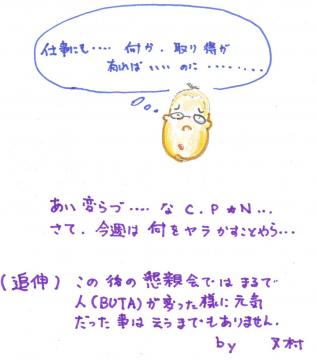 仕事にも‥‥ 何か、取り得が
あればいいのに‥‥‥‥
あい変らづ‥‥な C.P☆N...
さて、今週は何をヤラかすことやら...
(追伸) この後の懇親会ではまるで
人(BUTA)が変った様に元気
だった事は云うまでもありません。
by 村